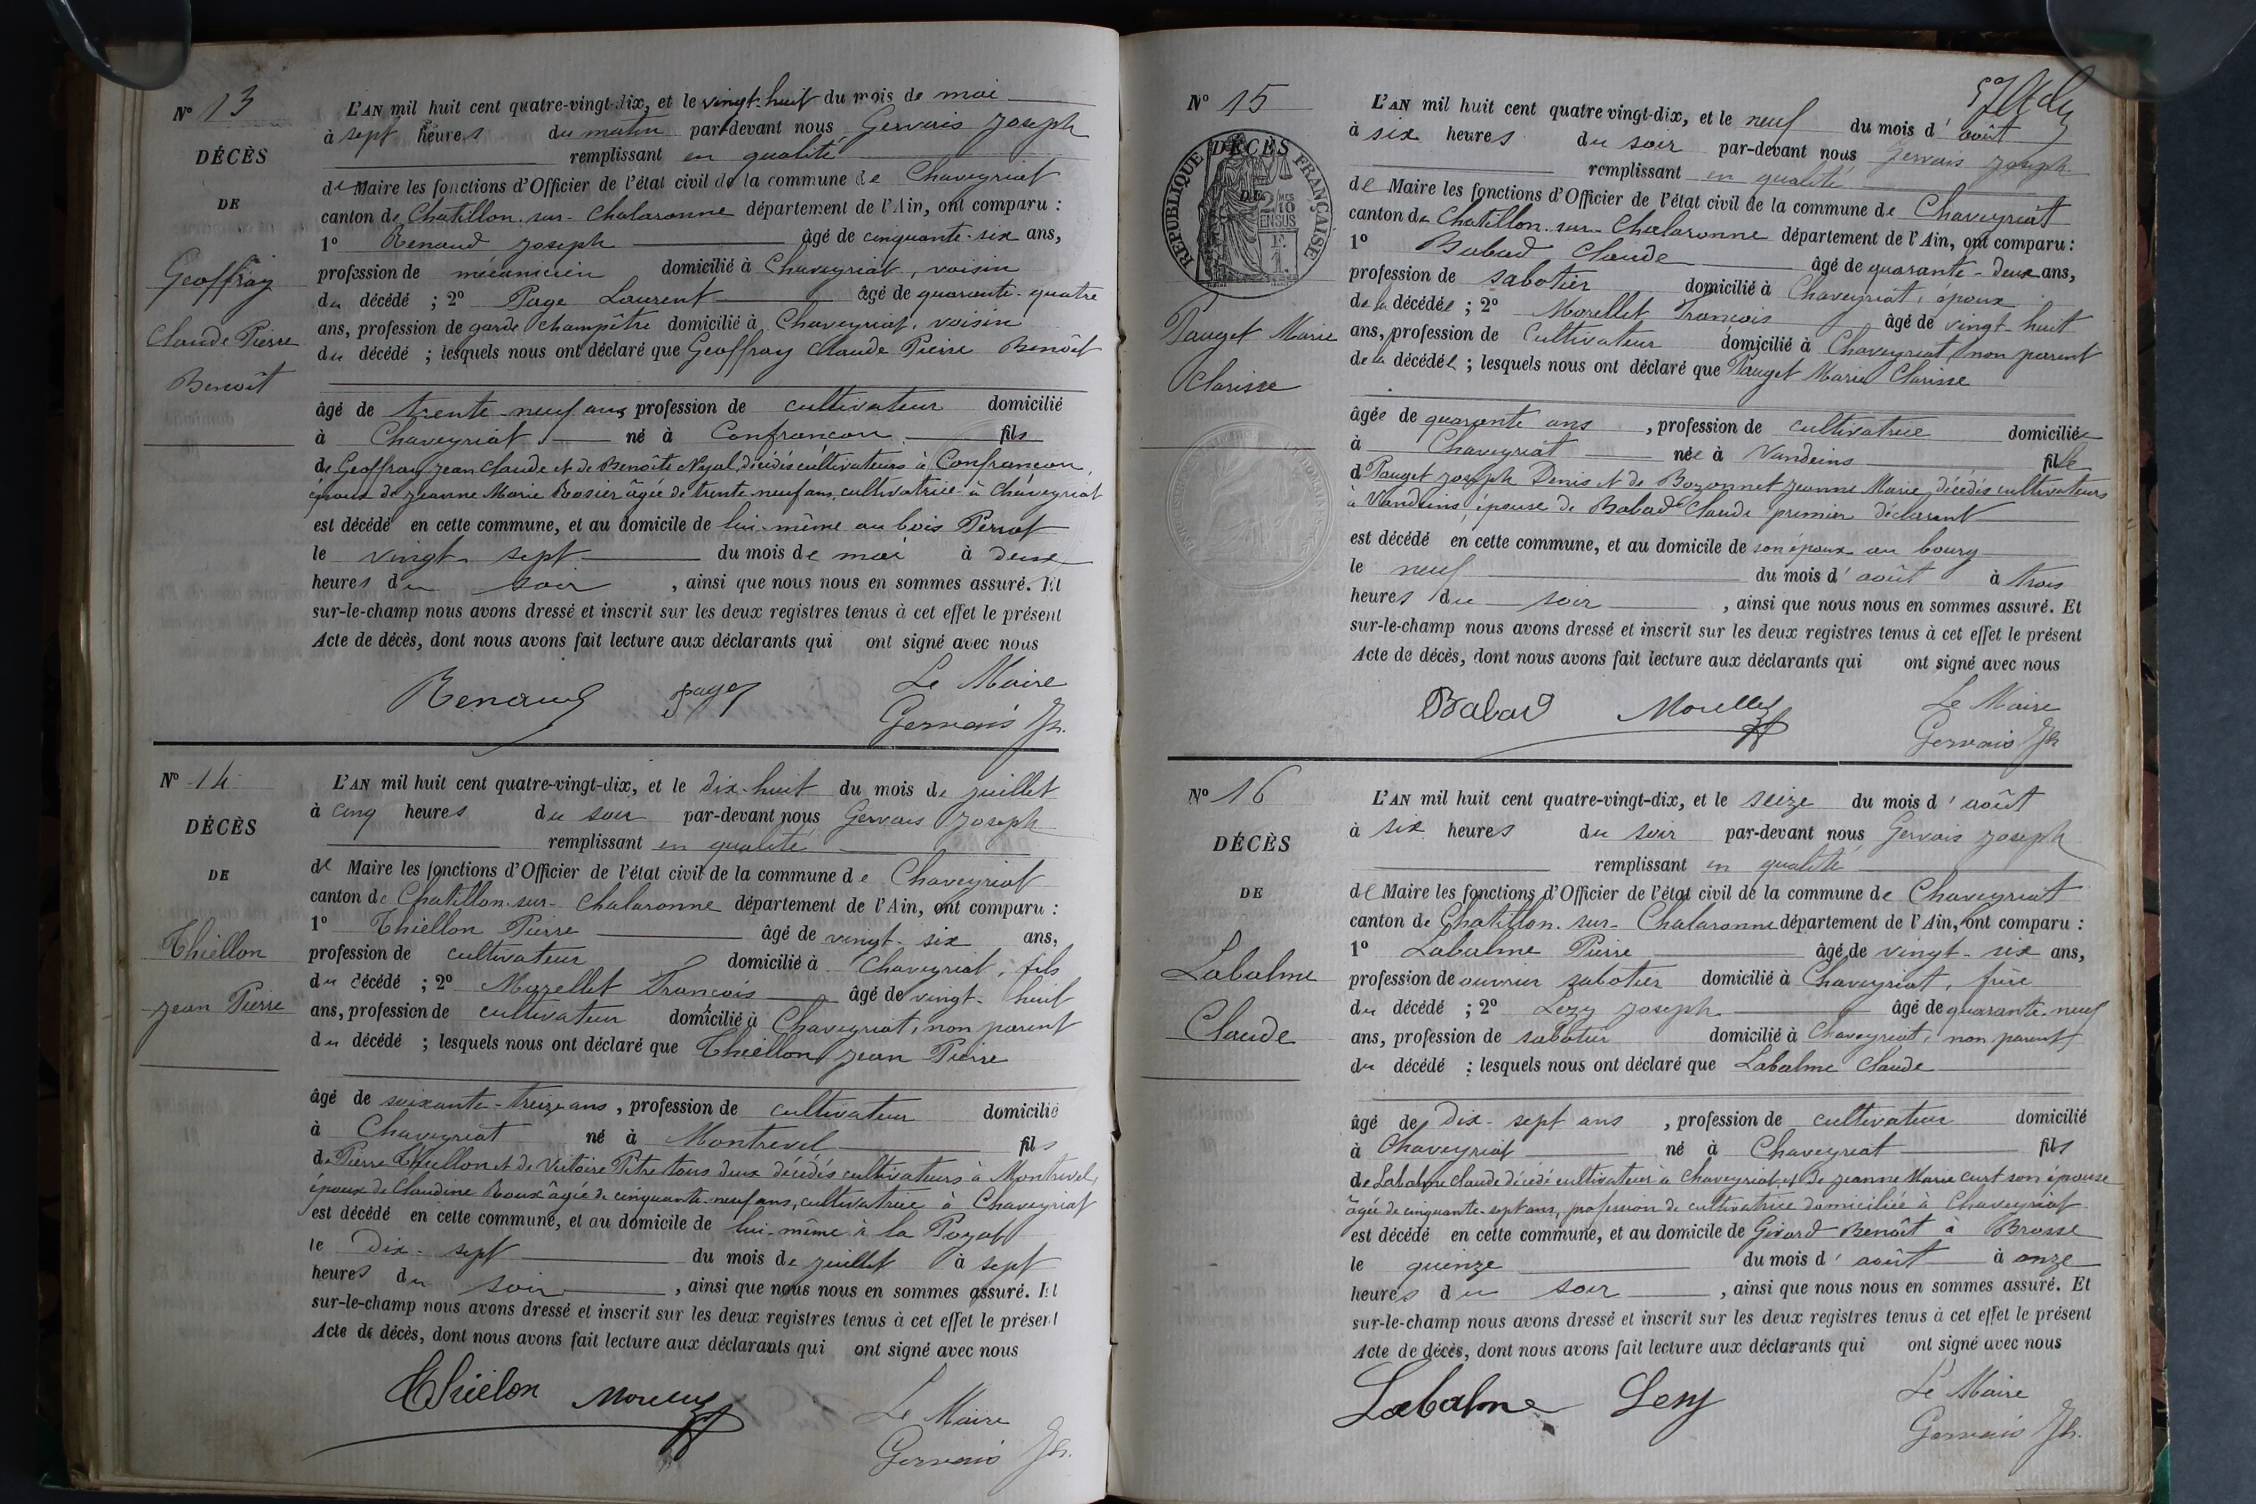 N° 13
DÉCÈS
DE
Geoffray
Claude Pierre
Benoît
L'AN mil huit cent quatre-vingt-dix, et le vingt-huit du mois de mai
à sept heures du matin par-devant nous Gervais Joseph
remplissant en qualité
de Maire les fonctions d'Officier de l'état civil de la commune de Chaveyriat
canton de Chatillon-sur-Chalaronne département de l'Ain, ont comparu :
1° Renaud Joseph âgé de cinquante-six ans,
profession de mécanicien domicilié à Chaveyriat, voisin
du décédé ; 2° Page Laurent âgé de quarante-quatre
ans, profession de garde champêtre domicilié à Chaveyriat, voisin
du décédé ; lesquels nous ont déclaré que Geoffray Claude Pierre Benoît
âgé de trente-neuf ans, profession de cultivateur domicilié
à Chaveyriat né à Confrancon fils
de Geoffray Jean Claude et de Benoîte Nyal, décédés cultivateurs à Confrancon,
époux de Jeanne Marie Rosier âgée de trente-neuf ans, cultivatrice à Chaveyriat
est décédé en cette commune, et au domicile de lui-même au bois Perrat
le vingt-sept du mois de mai à deux
heures du soir, ainsi que nous nous en sommes assuré. Et
sur-le-champ nous avons dressé et inscrit sur les deux registres tenus à cet effet le présent
Acte de décès, dont nous avons fait lecture aux déclarants qui ont signé avec nous
Renaud page Le Maire
Gervais Jh.
N° 14
DÉCÈS
DE
Thiellon
Jean Pierre
L'AN mil huit cent quatre-vingt-dix, et le dix-huit du mois de juillet
à cinq heures du soir par-devant nous Gervais Joseph
remplissant en qualité
de Maire les fonctions d'Officier de l'état civil de la commune de Chaveyriat
canton de Chatillon-sur-Chalaronne département de l'Ain, ont comparu :
1° Thiellon Pierre âgé de vingt-six ans,
profession de cultivateur domicilié à Chaveyriat, fils
du décédé ; 2° Morellet François âgé de vingt-huit
ans, profession de cultivateur domicilié à Chaveyriat, non parent
du décédé ; lesquels nous ont déclaré que Thiellon Jean Pierre
âgé de soixante-treize ans, profession de cultivateur domicilié
à Chaveyriat né à Montrevel fils
de Pierre Thiellon et de Victoire Pitre tous deux décédés cultivateurs à Montrevel,
époux de Claudine Roux âgée de cinquante-neuf ans, cultivatrice à Chaveyriat
est décédé en cette commune, et au domicile de lui-même à la Poyat
le dix-sept du mois de juillet à sept
heures du soir, ainsi que nous nous en sommes assuré. Et
sur-le-champ nous avons dressé et inscrit sur les deux registres tenus à cet effet le présent
Acte de décès, dont nous avons fait lecture aux déclarants qui ont signé avec nous
Thiélon Morellet Le Maire
Gervais Jh.
N° 15
DÉCÈS
DE
RÉPUBLIQUE FRANÇAISE
2/10
EN SUS
Pauget Marie
Clarisse
L'AN mil huit cent quatre vingt-dix, et le neuf du mois d'août
à six heures du soir par-devant nous Gervais Joseph
remplissant en qualité
de Maire les fonctions d'Officier de l'état civil de la commune de Chaveyriat
canton de Chatillon-sur-Chalaronne département de l'Ain, ont comparu :
1° Babad Claude âgé de quarante-deux ans,
profession de sabotier domicilié à Chaveyriat, époux
de la décédée ; 2° Morellet François âgé de vingt-huit
ans, profession de Cultivateur domicilié à Chaveyriat, non parent
de la décédée ; lesquels nous ont déclaré que Pauget Marie Clarisse
âgée de quarante ans, profession de cultivatrice domiciliée
à Chaveyriat née à Vandeins fille
de Pauget Joseph Denis et de Bozonnet Jeanne Marie, décédés cultivateurs
à Vandeins, épouse de Babad Claude premier déclarant
est décédé en cette commune, et au domicile de son époux au bourg
le neuf du mois d'août à trois
heures du soir, ainsi que nous nous en sommes assuré. Et
sur-le-champ nous avons dressé et inscrit sur les deux registres tenus à cet effet le présent
Acte de décès, dont nous avons fait lecture aux déclarants qui ont signé avec nous
Babad Morellet Le Maire
Gervais Jh
N° 16
DÉCÈS
DE
Labalme
Claude
L'AN mil huit cent quatre-vingt-dix, et le seize du mois d'août
à six heures du soir par-devant nous Gervais Joseph
remplissant en qualité
de Maire les fonctions d'Officier de l'état civil de la commune de Chaveyriat
canton de Chatillon-sur-Chalaronne département de l'Ain, ont comparu :
1° Labalme Pierre âgé de vingt-six ans,
profession de ouvrier sabotier domicilié à Chaveyriat, frère
du décédé ; 2° Lezy Joseph âgé de quarante-neuf
ans, profession de sabotier domicilié à Chaveyriat, non parent
du décédé ; lesquels nous ont déclaré que Labalme Claude
âgé de dix-sept ans, profession de cultivateur domicilié
à Chaveyriat né à Chaveyriat fils
de Labalme Claude décédé cultivateur à Chaveyriat et de Jeanne Marie Curt son épouse
âgée de cinquante-sept ans, profession de cultivatrice domiciliée à Chaveyriat
est décédé en cette commune, et au domicile de Girard Benoît à Brosse
le quinze du mois d'août à onze
heures du soir, ainsi que nous nous en sommes assuré. Et
sur-le-champ nous avons dressé et inscrit sur les deux registres tenus à cet effet le présent
Acte de décès, dont nous avons fait lecture aux déclarants qui ont signé avec nous
Labalme Lezy Le Maire
Gervais Jh.